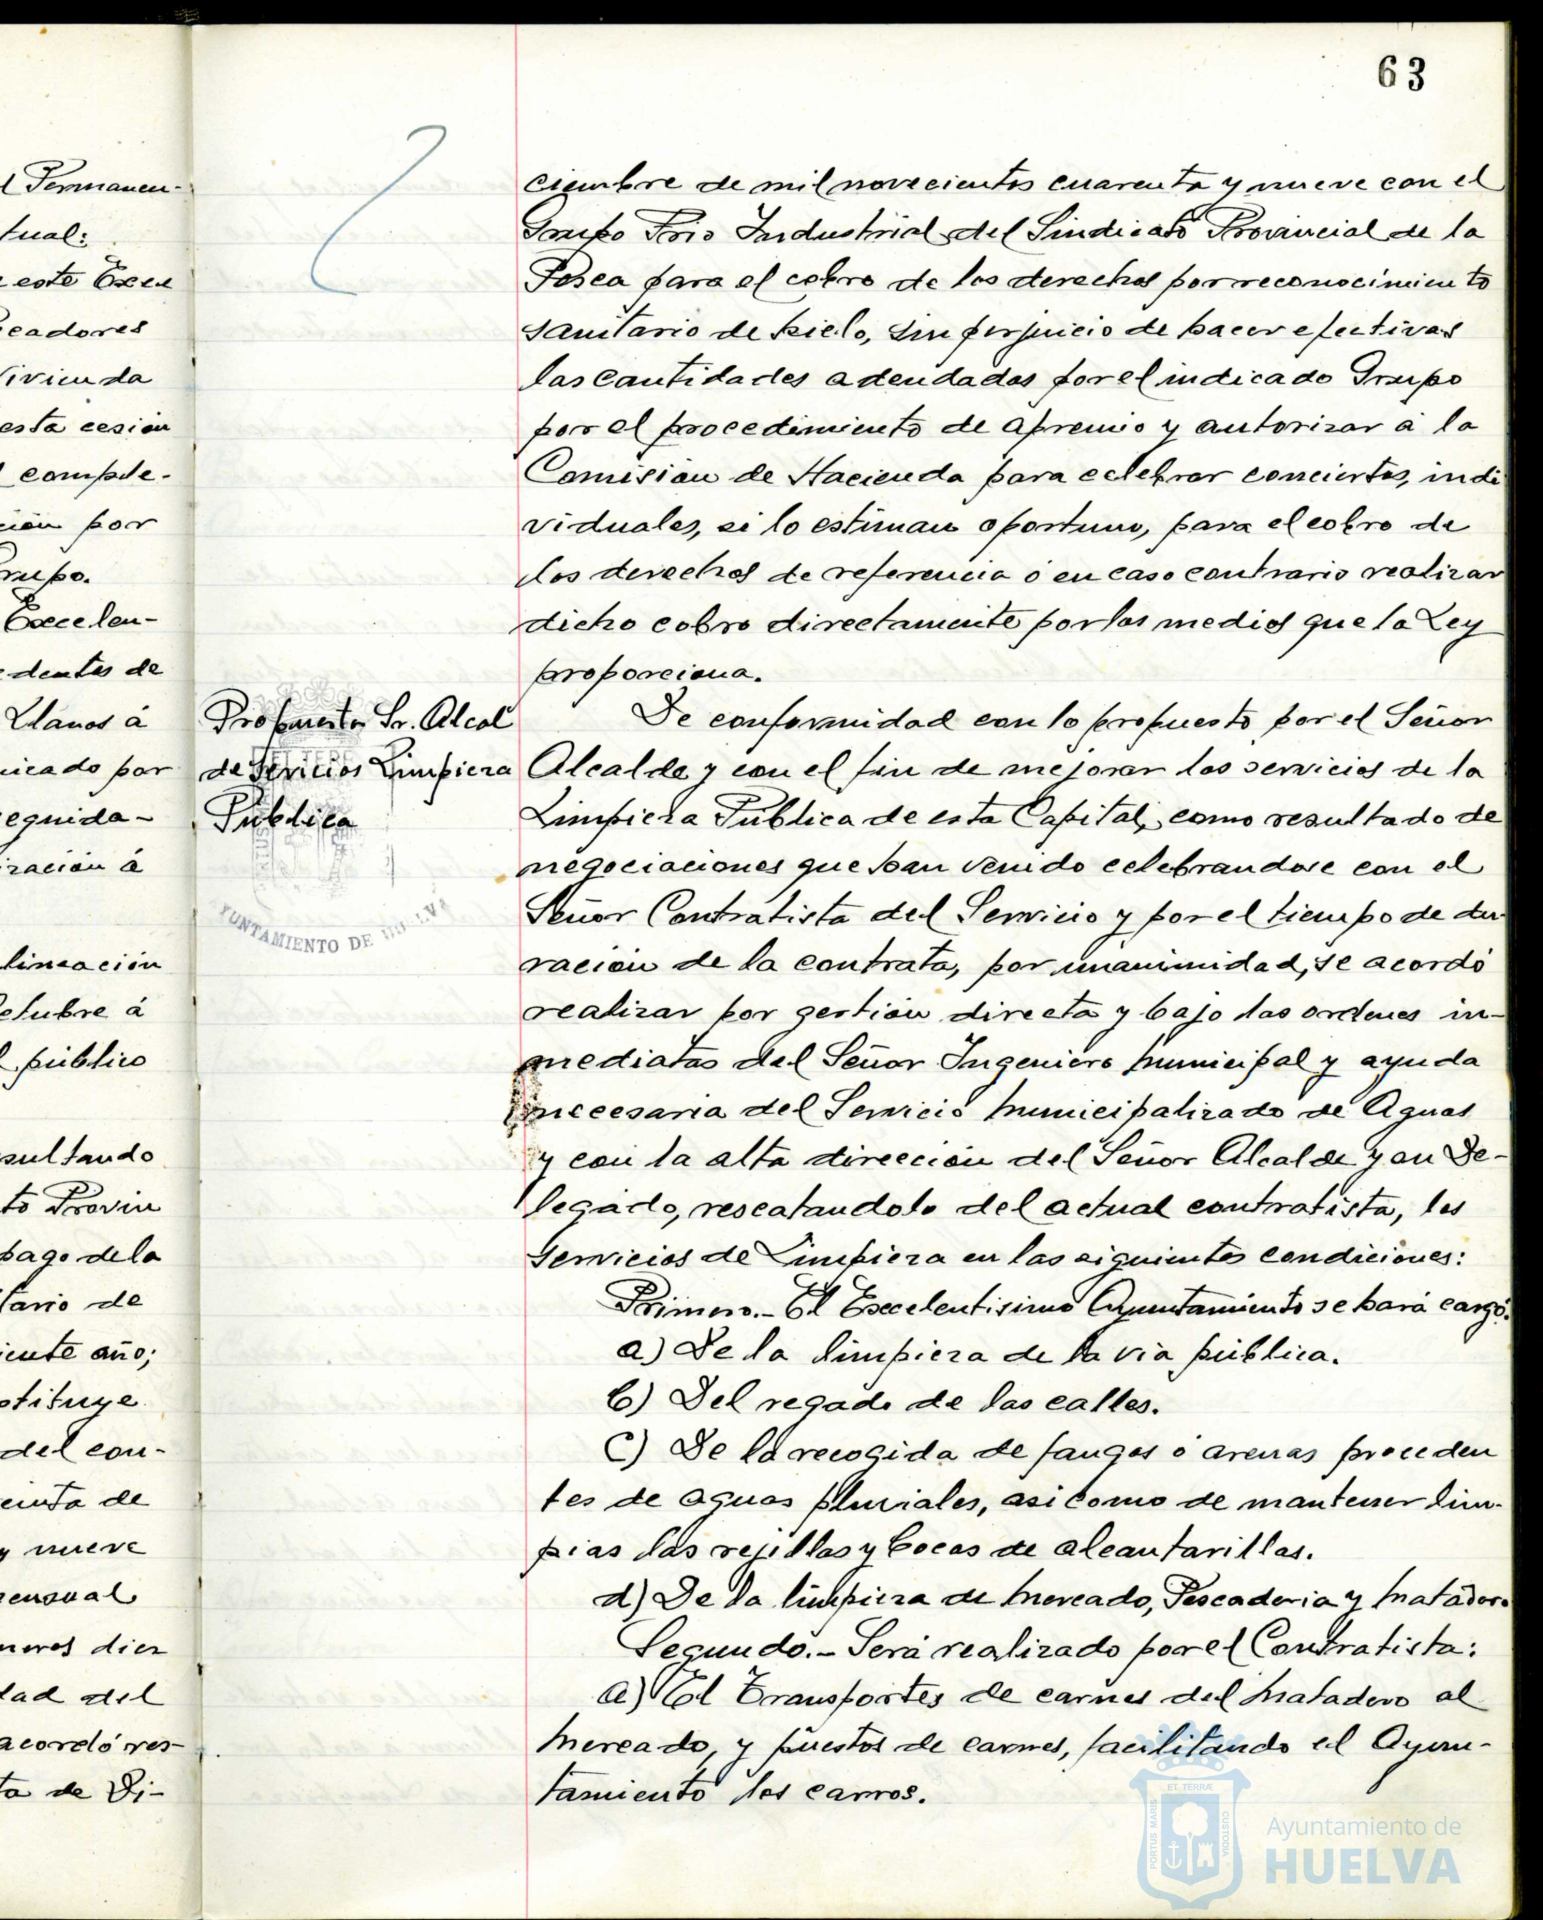 63
l Permanen-
tual:
este Exce
eadores
ivienda
esta cesión
comple-
ción por
rupo.
Excelen-
dentes de
Llanos á
nicado por
eguida-
ración á
lineación
ctubre á
l público
sultando
to Provin
pago de la
tario de
iente año;
stituye
del con-
cinta de
y nueve
ensual
meros diez
dad del
acordó res-
ta de Di-
ciembre de mil novecientos cuarenta y nueve con el
Grupo Frio Industrial del Sindicato Provincial de la
Pesca para el cobro de los derechos por reconocimiento
sanitario de hielo, sin perjuicio de hacer efectivas
las cantidades adeudadas por el indicado Grupo
por el procedimiento de apremio y autorizar a la
Comisión de Hacienda para celebrar conciertos, indi
viduales, si lo estiman oportuno, para el cobro de
los derechos de referencia ó en caso contrario realizar
dicho cobro directamente por los medios que la Ley
proporciona.
Propuesta Sr. Alcal
de Servicios Limpieza
Pública
De conformidad con lo propuesto por el Señor
Alcalde y con el fin de mejorar los servicios de la
Limpieza Pública de esta Capital, como resultado de
negociaciones que han venido celebrandose con el
Señor Contratista del Servicio y por el tiempo de du-
ración de la contrata, por unanimidad, se acordó
realizar por gestión directa y bajo las ordenes in-
mediatas del Señor Ingeniero Municipal y ayuda
necesaria del Servicio Municipalizado de Aguas
y con la alta dirección del Señor Alcalde y su De-
legado, rescatandolo del actual contratista, los
servicios de Limpieza en las siguientes condiciones:
Primero.- El Excelentisimo Ayuntamiento se hará cargo:
a) De la limpieza de la via pública.
b) Del regado de las calles.
c) De la recogida de fangos ó arenas proceden
tes de aguas pluviales, asi como de mantener lim-
pias las rejillas y bocas de alcantarillas.
d) De la limpieza de Mercado, Pescaderia y Matadero
Segundo.- Será realizado por el Contratista:
a) El Transportes de carnes del Matadero al
Mercado, y puestos de carnes, facilitando el Ayun-
tamiento los carros.
YUNTAMIENTO DE HUELVA
ET TERRÆ
PORTUS MARIS
CUSTODIA
Ayuntamiento de
HUELVA